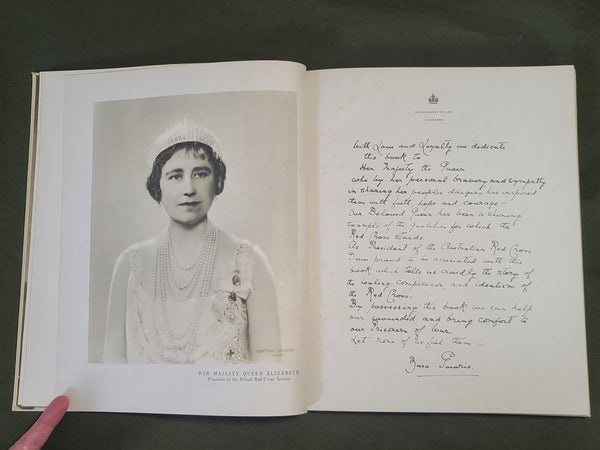 DOROTHY WILDING
LONDON
HER MAJESTY QUEEN ELIZABETH
President of the British Red Cross Society
GOVERNMENT HOUSE
CANBERRA
With Love and Loyalty we dedicate
this book to
Her Majesty the Queen
who by her personal bravery and sympathy
in sharing her peoples dangers has inspired
them with faith hope and courage —
Our Beloved Queen has been a shining
example of the qualities for which the
Red Cross stands.
As President of the Australian Red Cross
I am proud to be associated with this
book which tells us vividly the story of
the healing compassion and idealism of
the Red Cross.
By possessing this book we can help
our wounded and bring comfort to
our Prisoners of War
Let none of us fail them —
Zara Gowrie.